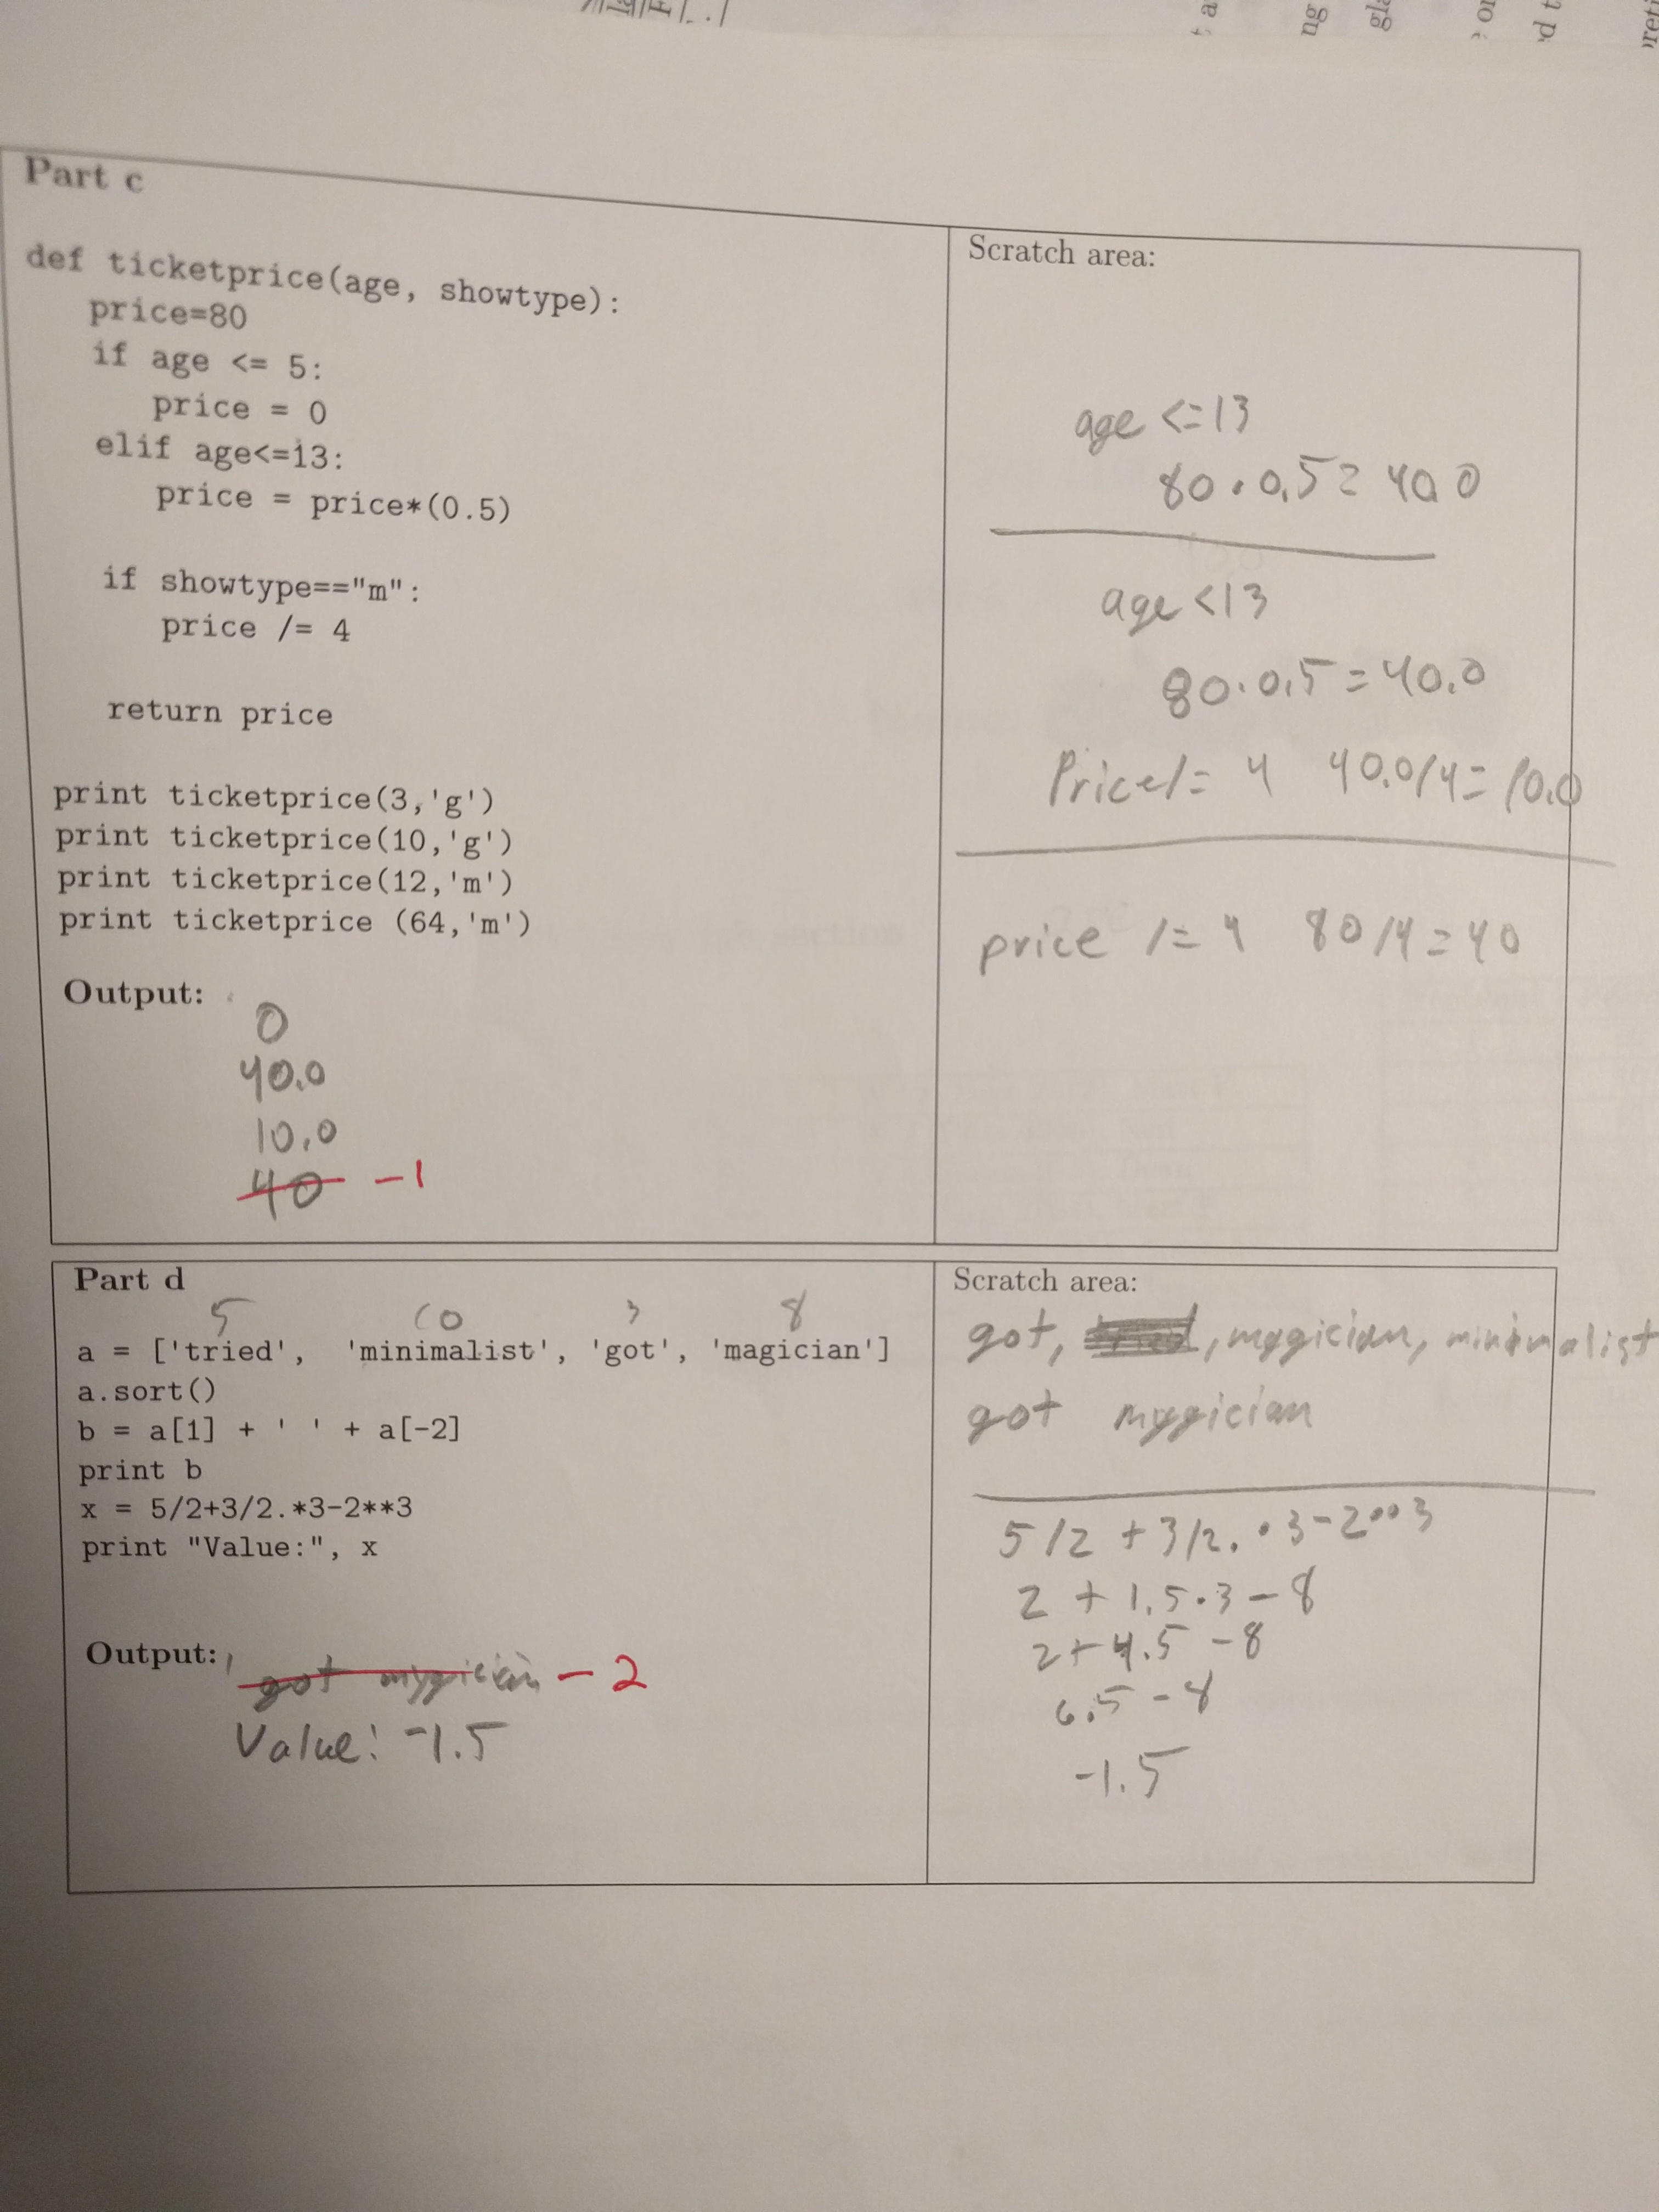 Part c
def ticketprice(age, showtype):
price=80
if age <= 5:
price = 0
elif age<=13:
price = price*(0.5)
if showtype=="m":
price /= 4
return price
print ticketprice(3,'g')
print ticketprice(10,'g')
print ticketprice(12,'m')
print ticketprice (64,'m')
Output:
0
40.0
10.0
40 -1
Scratch area:
age <=13
80 · 0.5 = 40.0
age <13
80 · 0.5 = 40.0
Price /= 4 40.0/4 = 10.0
price /= 4 80/4 = 40
Part d
5 10 3 8
a = ['tried', 'minimalist', 'got', 'magician']
a.sort()
b = a[1] + ' ' + a[-2]
print b
x = 5/2+3/2.*3-2**3
print "Value:", x
Output:
got mygician -2
Value: -1.5
Scratch area:
got, , mygician, minimalist
got mygician
5/2 + 3/2. · 3-2**3
2 + 1.5 · 3 - 8
2+4.5 - 8
6.5 - 8
-1.5